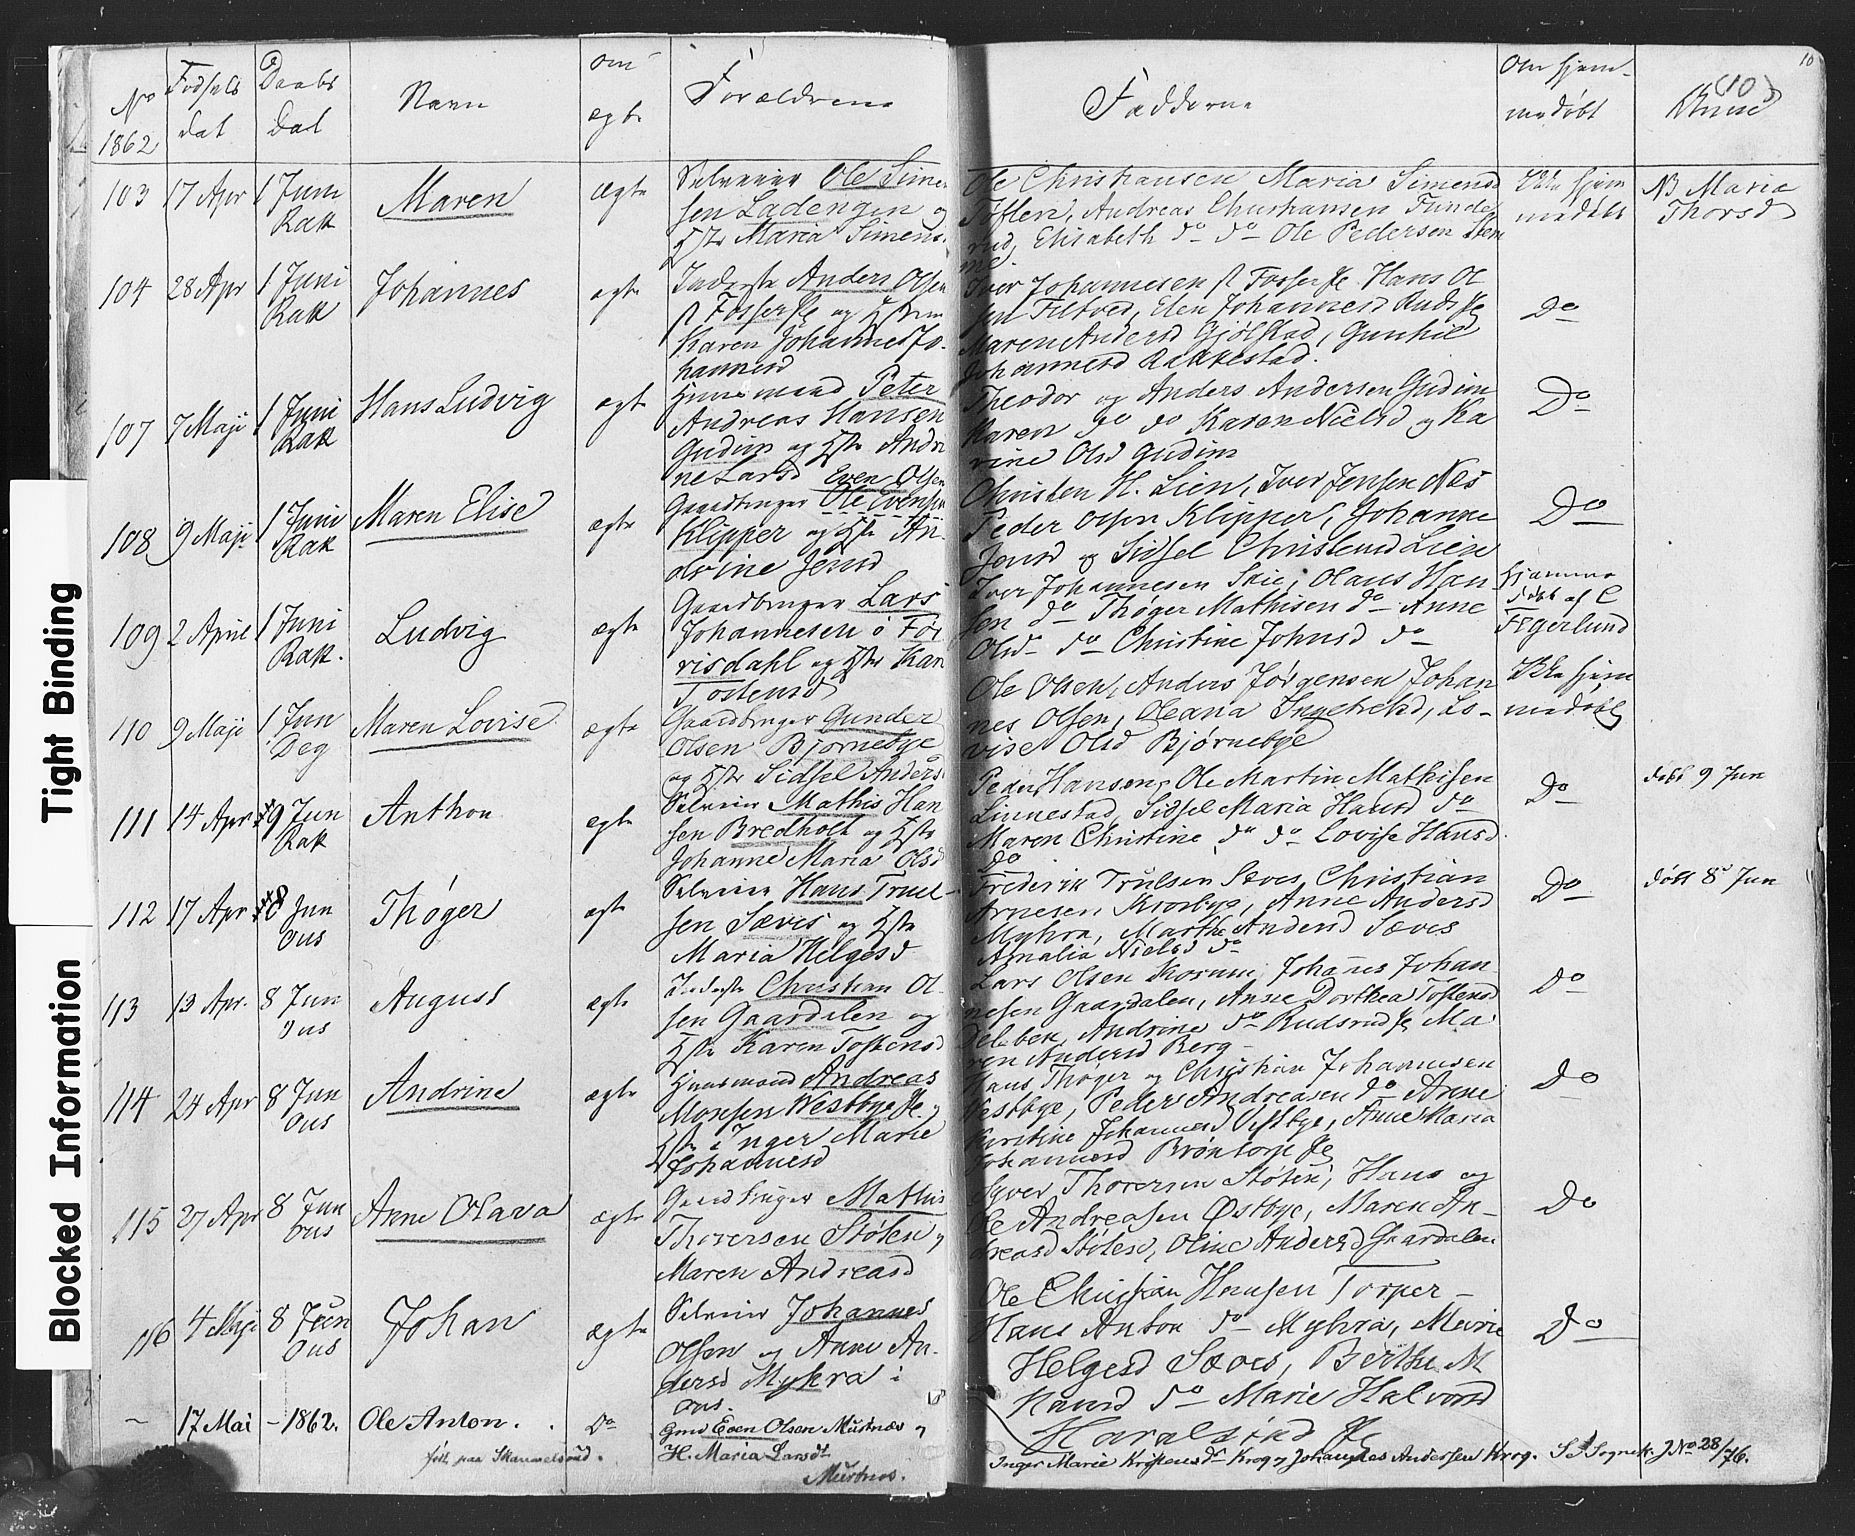 10
(10)
No
1862
Fødsels
dat
Daabs
Dat
Navn
om
ægte
Forældrene
Fadderne
Om hjem-
medøbt
103 17 Apr 1 Juni
Rak
Maren
Ægte
Selveier Ole Simen
sen Ladengen og
Hstr Maria Simens
Ole Christiansen Maria Simensd
Toften, Andreas Christiansen Funde
rud, Elisabeth do do Ole Pedersen
Ikke hjem
medøbt
NB Maria
Thorsd
104 28 Apr 1 Juni
Rak
Johannes
ægte
Inderste Anders Olsen
Fosser og
Karen Johannes Jo
hannesd
Iver Johannesen Fosser Hans Ol
sen Filtved, Elen Johannesd Rud
Maren Andersd Gjølstad, Gunhil
Johannesd Rakkestad.
Do
107 7 Maji 1 Juni
Rak
Hans Ludvig
ægte
Huusmand Peter
Andreas Hansen
Gudim og Hstr Andri
ne Larsd
Theodor og Anders Andersen Gudim
Karen do do Karen Nielsd og Ka
rine Olsd Gudim
Do
108 9 Maji 1 Juni
Rak
Maren Elise
ægte
Even Olsen
Gaardbruger Ole Evensen
Klipper og Hstr An
drine Jensd
Christen H. Lien, Iver Jensen Næs
Peder Olsen Klipper, Johanne
Jensd og Sidsel Christensd Lien
Do
109 2 April 1 Juni
Rak.
Ludvig
ægte
Gaardbruger Lars
Johannesen o For
risdahl og Hstr Kari
Tostensd
Iver Johannesen Skie, Olaus Han
sen do Thøger Mathisen do Anne
Olsd do Christine Johnsd do
Hjemme
døbt af C
F Egerlund
110 9 Maji 1 Jun
Deg
Maren Lovise
ægte
Gaardbruger Gunder
Olsen Bjørnebye
og Hstr Sidsel Anders
Ole Olsen, Anders Jørgensen Johan
nes Olsen, Oleana Ingebretsd, Lo-
vise Olsd Bjørnebye
Ikke hjem
medøbt
111 14 Apr 9 Jun
Rak
Anthon
ægte
Selveier Mathis Han
sen Bredholt og Hstr
Johanne Maria Olsd
Peder Hansen, Ole Martin Mathisen
Linnestad, Sidsel Maria Hansd do
Maren Christine do do Lovise Hansd
do
Do
døbt 9 Jun
112 17 Apr 8 Jun
Ous
Thøger
ægte
Selveier Hans Truel
sen Sæves og Hstr
Maria Helgesd
Frederik Trulsen Sæves, Christian
Arnesen Krosbye, Anne Andersd
Myhra, Marthe Andersd Sæves
Amalia Nielsd do
Do
døbt 8 Jun
113 13 Apr. 8 Jun
Ous
August
ægte
Inderste Christian Ol
sen Gaardalen og
Hstr Karen Tostensd
Lars Olsen Korum, Johanes Johan
nesen Gaardalen, Anne Dorthea Tostensd
Delebek, Andrine do Rudsrud Ma
ren Andersd Berg
Do
114 24 Apr 8 Jun
Ous
Andrine
ægte
Huusmand Andreas
Mosesen Westbye
Hstr Inger Marie
Johannesd
Hans Thøger og Christian Johannesen
Vestbye, Peder Andreasen do Anne
Kirstine Johannesd Vestbye, Anne Maria
Johannesd Brøntorp
Do
115 27 Apr 8 Jun
Ous
Anne Olava
ægte
Gaardbruger Mathis
Thoresen Stølen og
Maren Andreasd
Syver Thoresen Stølen, Hans og
Ole Andreasen Østbye, Maren An-
dreasd Stølen, Oline Andersd Gaardalen
Do
116 4 Maji 8 Jun
Ous
Johan
ægte
Selveier Johannes
Olsen og Anne An
dersd Myhra i
Ous.
Ole Christian Hansen Torper
Hans Anton do Myhra, Marie
Helgesd Sæves, Berthe M
Hansd do Marie Halvorsd
Haralsrud
Do
~ 17 Mai - 1862. Ole Anton.
Do
Gmd Even Olsen Murtnæs og
H. Maria Larsdt
Murtnes.
født paa Skammelsrud.
Inger Marie Kristensdr Krog, Johannes Andersen Krog. S S Sognek. J No 28/76.
Tight Binding
Blocked Information